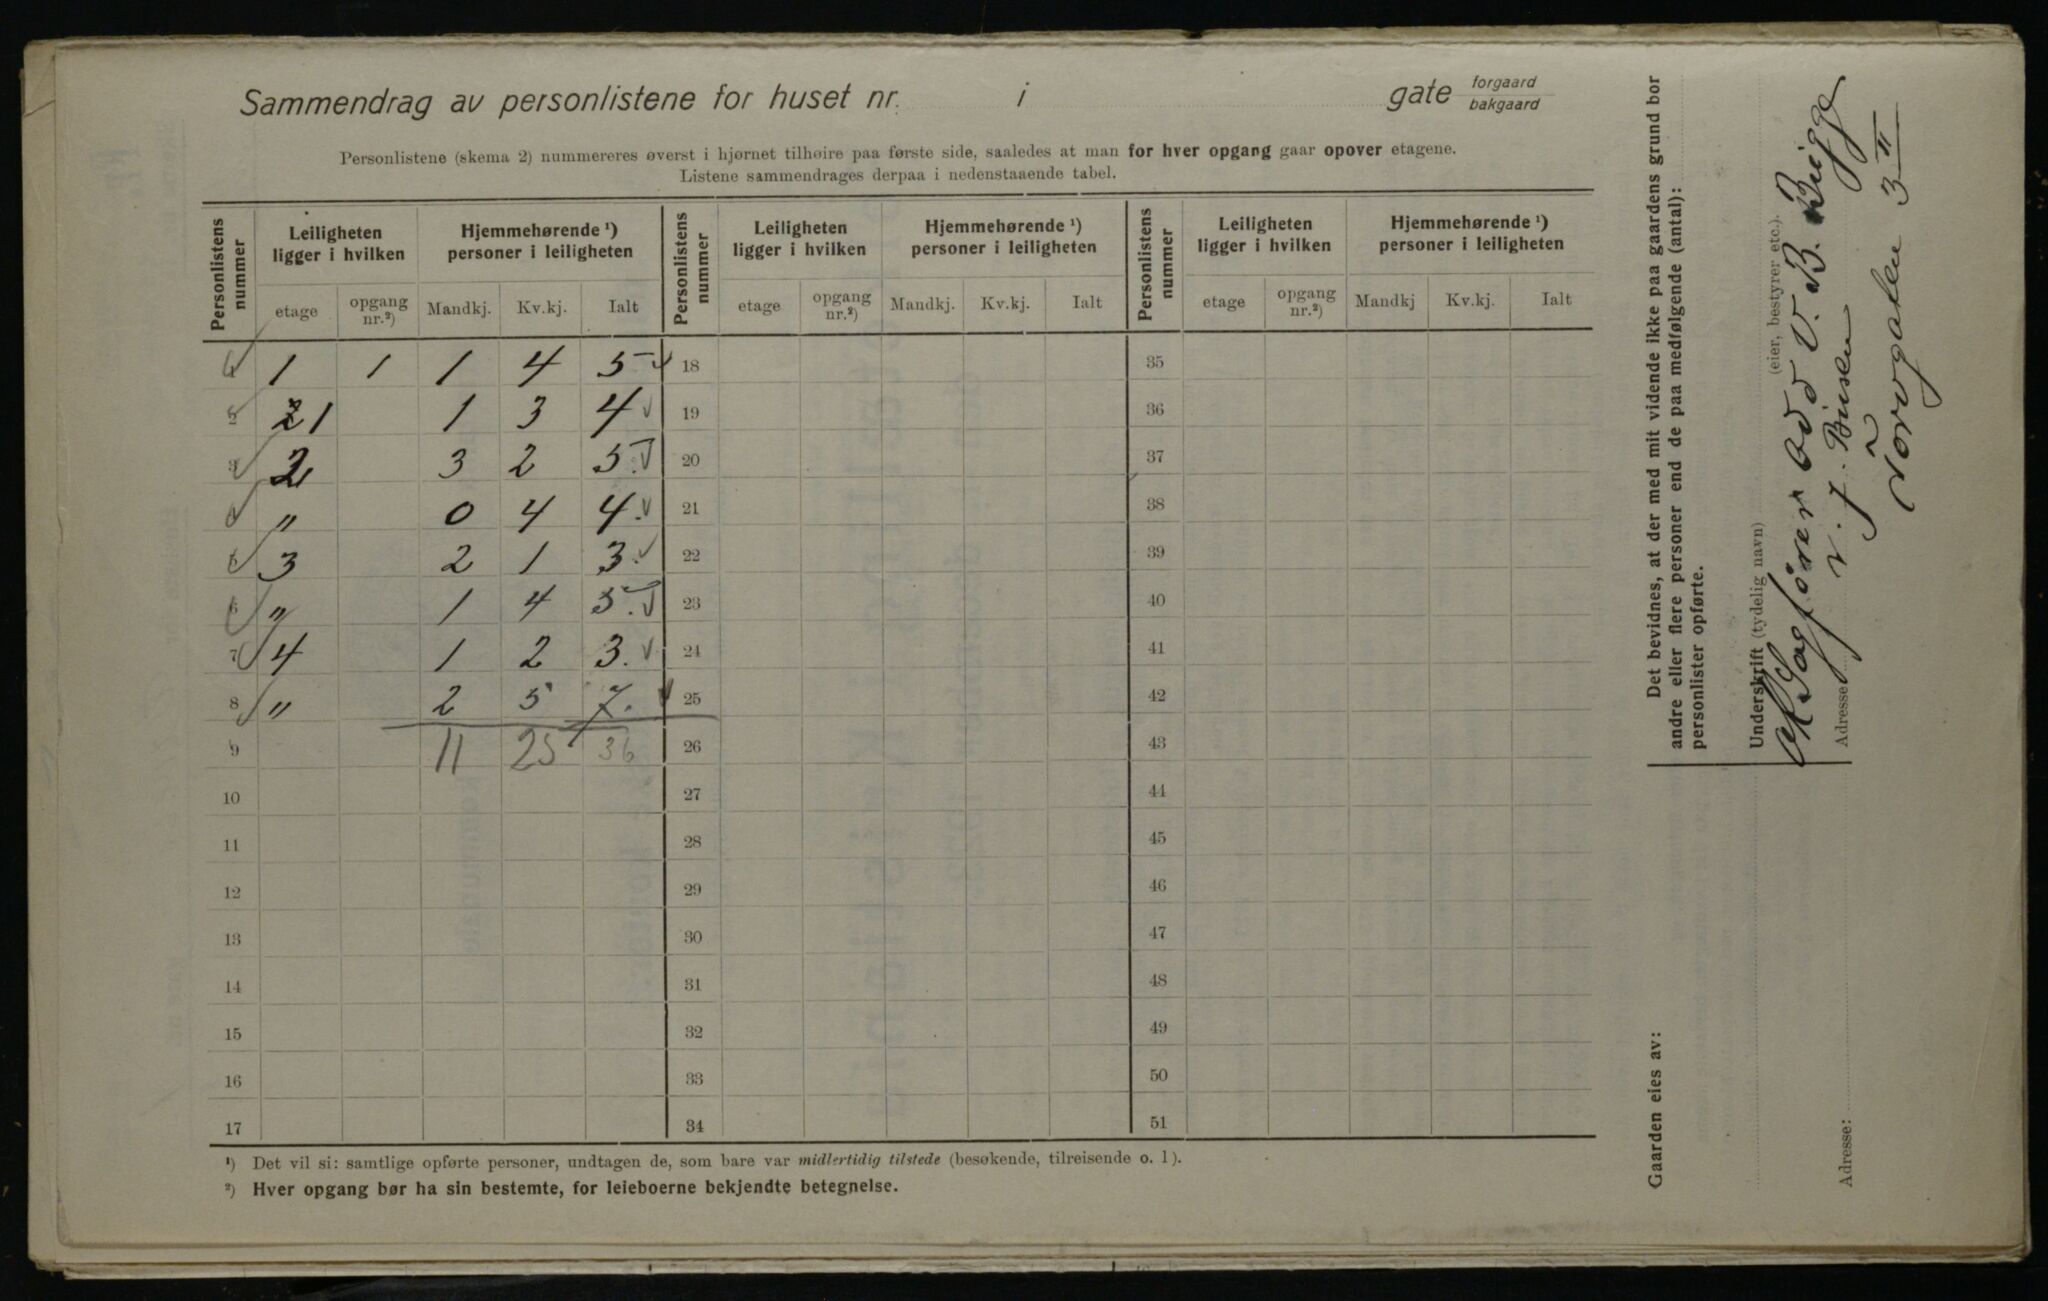 Sammendrag av personlistene for huset nr. i gate forgaard
bakgaard
Personlistene (skema 2) nummereres øverst i hjørnet tilhøire paa første side, saaledes at man for hver opgang gaar opover etagene.
Listene sammendrages derpaa i nedenstaaende tabel.
Personlistens nummer | Leiligheten ligger i hvilken | Hjemmehørende ¹) personer i leiligheten | Personlistens nummer | Leiligheten ligger i hvilken | Hjemmehørende ¹) personer i leiligheten | Personlistens nummer | Leiligheten ligger i hvilken | Hjemmehørende ¹) personer i leiligheten
etage | opgang nr.²) | Mandkj. | Kv.kj. | Ialt | etage | opgang nr.²) | Mandkj. | Kv.kj. | Ialt | etage | opgang nr.²) | Mandkj | Kv.kj. | Ialt
1 | 1 | 1 | 1 | 4 | 5 | 18 | 35
2 | 1 | 1 | 3 | 4 | 19 | 36
3 | 2 | 3 | 2 | 5. | 20 | 37
4 | " | 0 | 4 | 4. | 21 | 38
5 | 3 | 2 | 1 | 3. | 22 | 39
6 | " | 1 | 4 | 5. | 23 | 40
7 | 4 | 1 | 2 | 3. | 24 | 41
8 | " | 2 | 5 | 7. | 25 | 42
9 | 11 | 25 | 36 | 26 | 43
10 | 27 | 44
11 | 28 | 45
12 | 29 | 46
13 | 30 | 47
14 | 31 | 48
15 | 32 | 49
16 | 33 | 50
17 | 34 | 51
¹) Det vil si: samtlige opførte personer, undtagen de, som bare var midlertidig tilstede (besøkende, tilreisende o. l).
²) Hver opgang bør ha sin bestemte, for leieboerne bekjendte betegnelse.
Det bevidnes, at der med mit vidende ikke paa gaardens grund bor
andre eller flere personer end de paa medfølgende (antal):
personlister opførte.
Underskrift (tydelig navn) (eier, bestyrer etc.).
Sagfører Odd V. B. Bugge
Adresse
Torvgaten 3 II
Gaarden eies av:
Adresse: